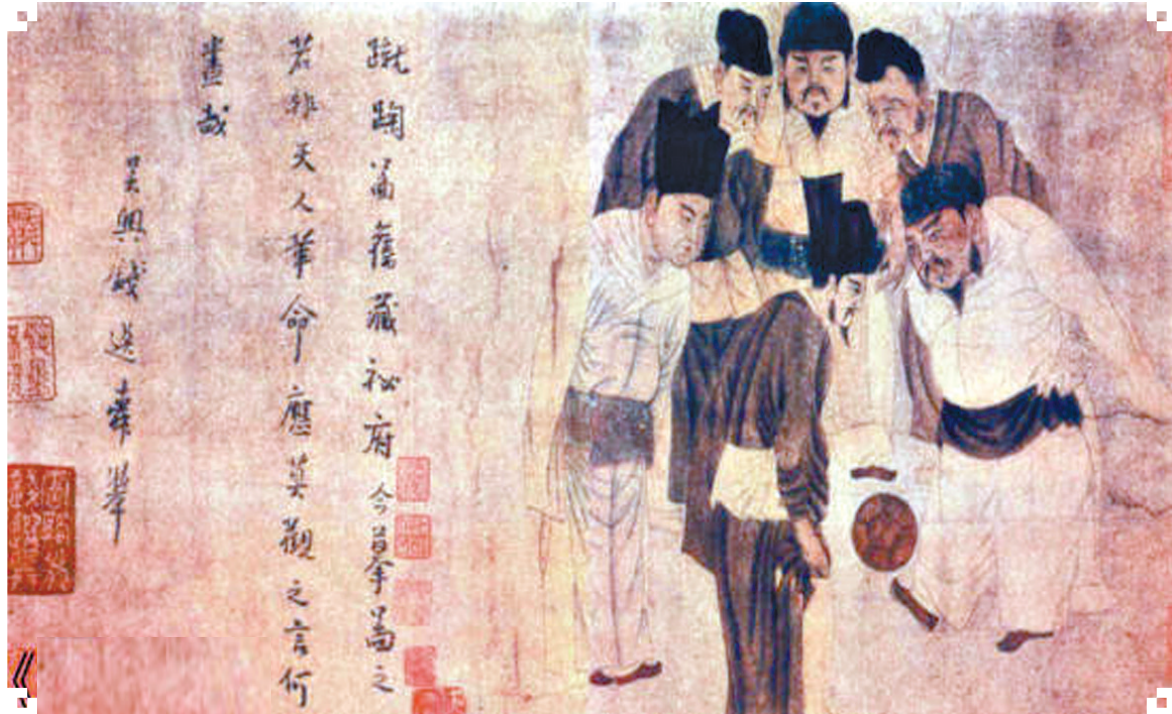 蹴鞠啚舊藏祕府今摹啚之
若非天人革命應莫觀之言何
盡哉
吳興錢選舜舉
《